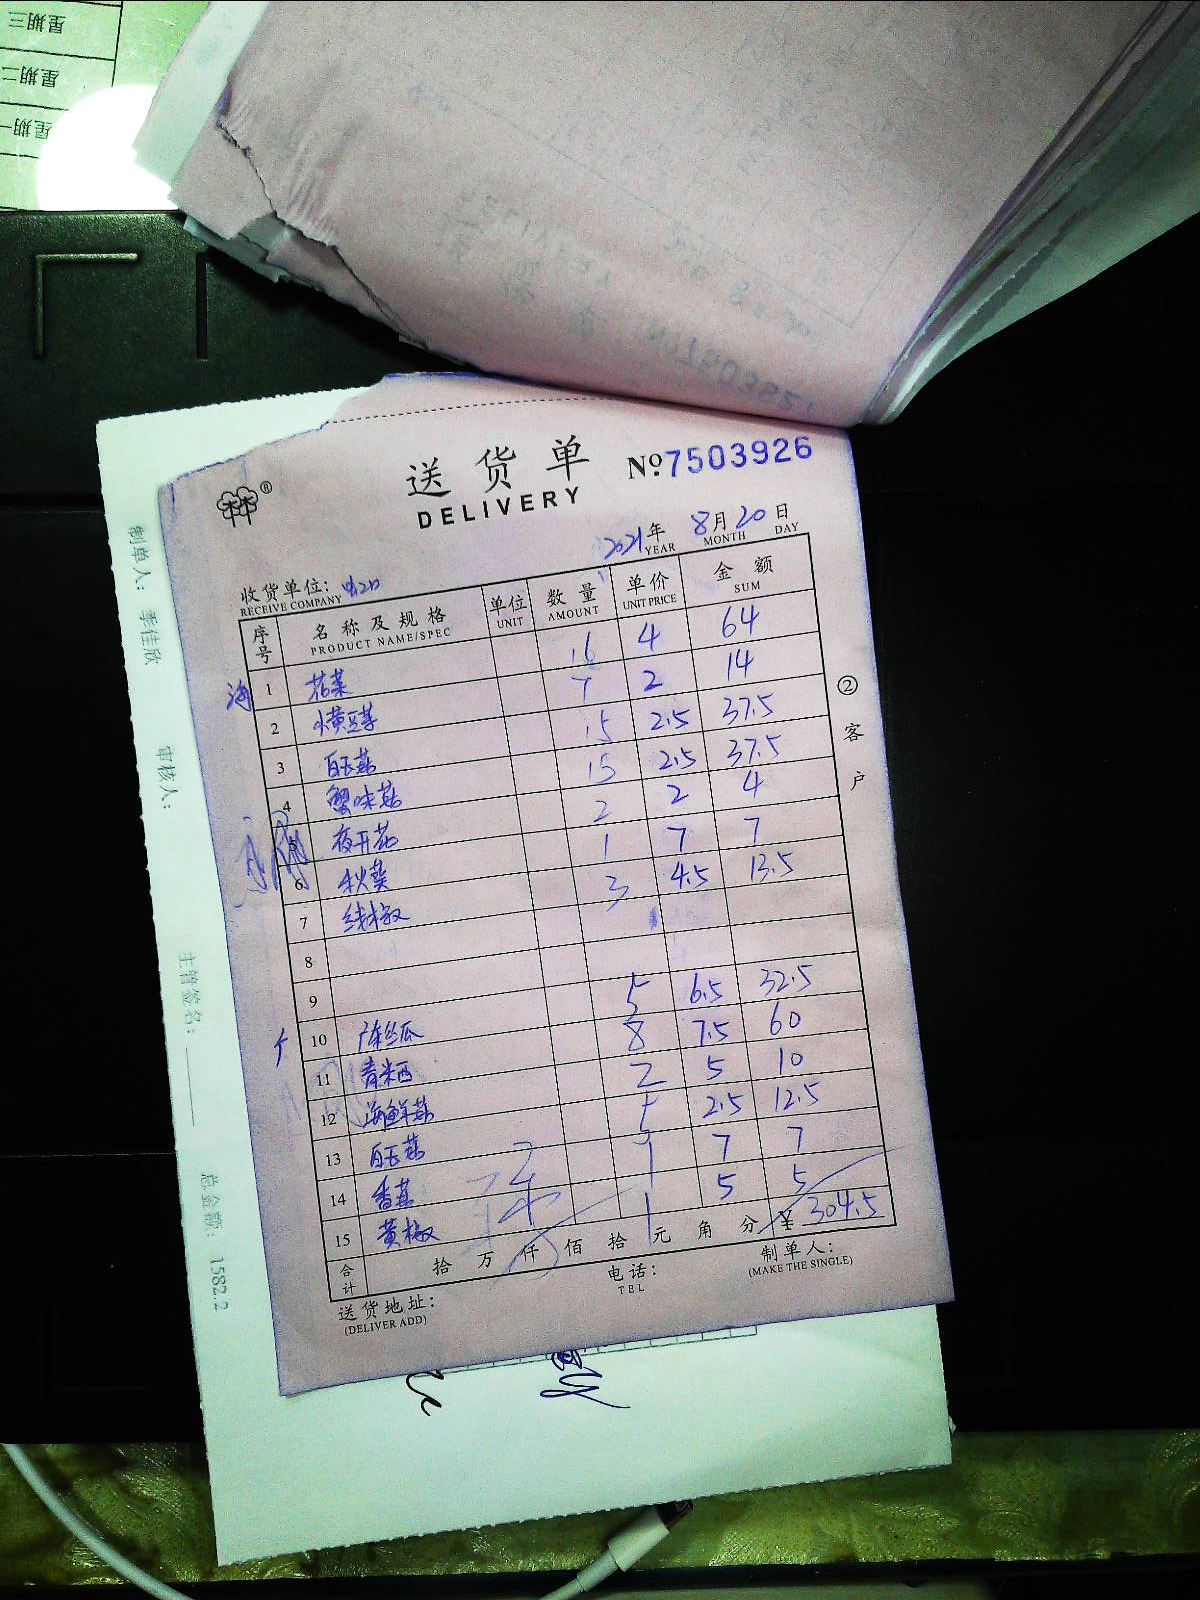 星期三
星期二
星期一
送货单
DELIVERY
№7503926
2021年 8月20日
YEAR MONTH DAY
收货单位:
RECEIVE COMPANY
序号 名称及规格 单位 数量 单价 金额
PRODUCT NAME/SPEC UNIT AMOUNT UNIT PRICE SUM
海 1 花菜 16 4 64
2 小黄豆芽 7 2 14
3 白玉菇 15 2.5 37.5
4 蟹味菇 15 2.5 37.5
5 夜开花 2 2 4
6 秋葵 1 7 7
7 线椒 3 4.5 13.5
8
9
10 丝瓜 5 6.5 32.5
11 青米西 8 7.5 60
12 海鲜菇 2 5 10
13 白玉菇 5 2.5 12.5
14 香菇 1 7 7
15 黄椒 1 5 5
合计 拾万仟佰拾元角分 ¥ 304.5
送货地址:
(DELIVER ADD)
电话:
TEL
制单人:
(MAKE THE SINGLE)
②客户
制单人: 季佳欣
审核人:
主管签名:
总金额: 1582.2